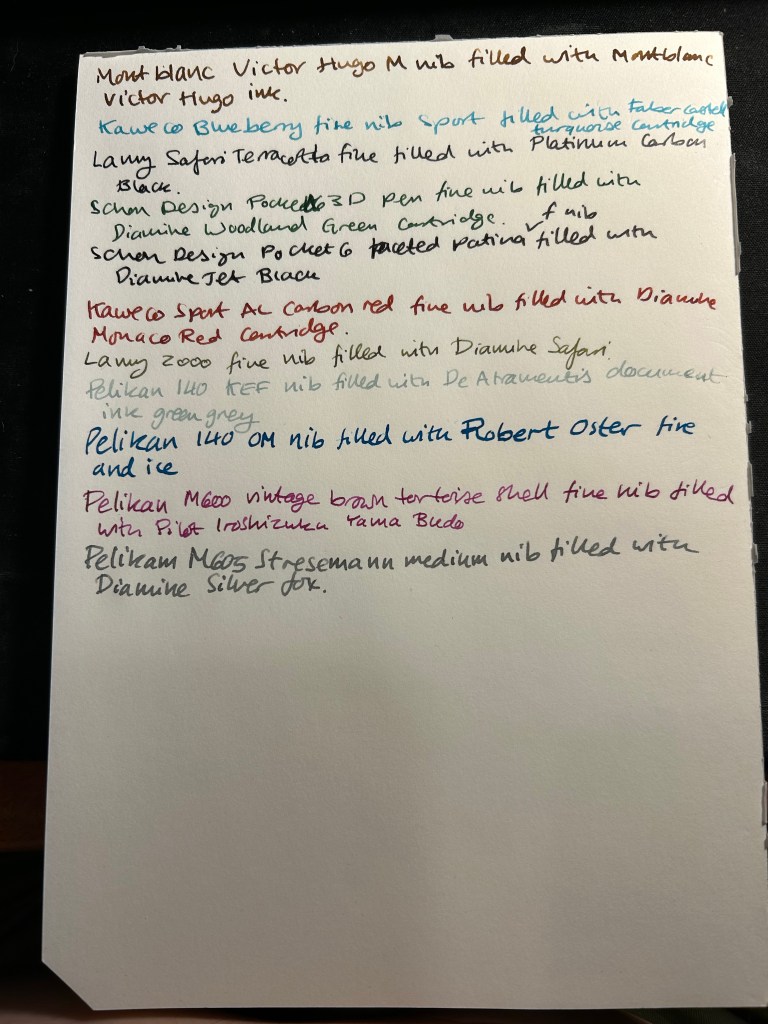 Montblanc Victor Hugo M nib filled with Montblanc
Victor Hugo ink.
Kaweco Blueberry fine nib Sport filled with Faber Castell
turquoise cartridge
Lamy Safari Terracotta fine filled with Platinum Carbon
Black.
Schon Design Pocket 6 3D pen fine nib filled with
Diamine Woodland Green Cartridge.
f nib
Schon Design Pocket 6 faceted patina ✓ filled with
Diamine Jet Black
Kaweco Sport AL Carbon red fine nib filled with Diamine
Monaco Red Cartridge.
Lamy 2000 fine nib filled with Diamine Safari.
Pelikan 140 KEF nib filled with De Atramentis document
ink green grey
Pelikan 140 OM nib filled with Robert Oster fire
and ice
Pelikan M600 vintage brown tortoise shell fine nib filled
with Pilot Iroshizuku Yama Budo
Pelikan M605 Stresemann medium nib filled with
Diamine Silver fox.